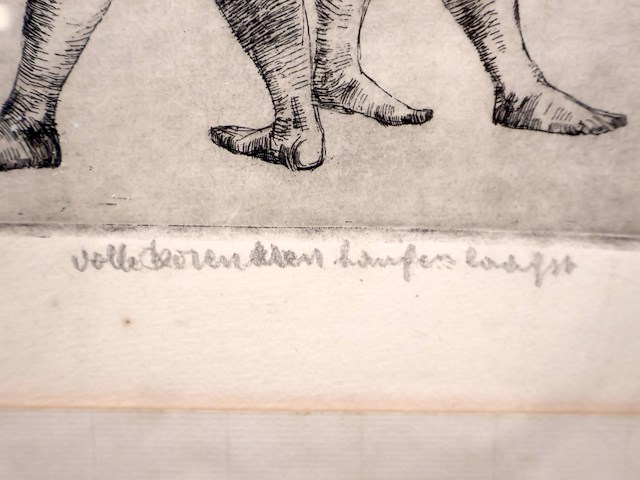 volle korenaren hangen laagst